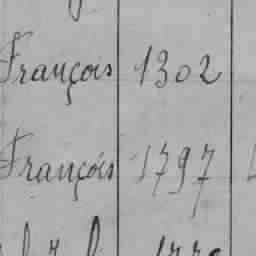 François 1302
François 1797